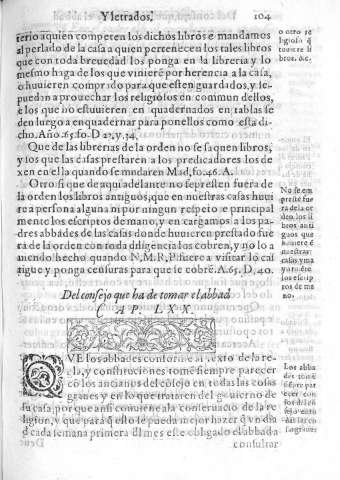 Y letrados, 104
terio aquien competen los dichos libros è mandamos
al perlado de la casa a quien pertenecen los tales libros
que con toda breuedad los ponga en la libreria y lo
mesmo haga de los que vinierē por herencia a la casa,
o huuieren comprado para que esten guardados, y se
puedan aprouechar los religiosos en commun dellos,
è los que no estuuieren en quadernados en tablas se
den luego a enquadernar para ponellos como esta di
cho. Año. 65. fo. D 27, y. 34.
Que de las librerias de la orden no se saquen libros,
y los que las casas prestaren a los predicadores los de
xen en ella quando se mudaren Mad, fo. 46. A.
Otro si que de aqui adelante no se presten fuera de
la orden los libros antiguos, que en nuestras casas huui
re a persona alguna ni por ningun respeto e principal
mente los escriptos de mano, y en cargamos a los pa
dres abbades de las casas donde huuieren prestado fue
ra de la orden con toda diligencia los cobren, y no lo a
uiendo hecho quando N. M. R. P. fuere a visitar lo cas
tigue y ponga censuras para que se cobrē. A. 65. D, 40.
Del consejo que ha de tomar el abbad
CAP. LXX.
QVE los abbades conforme al texto de la re
gla, y constituciones tomē siempre parecer
cō los ancianos del cōsejo en todas las cosas
graues y en lo que trataren del gouierno de
su casa, por que ansi conuiene a la conseruacio de la re
ligion, y que para q̄ esto se pueda mejor hazer q̄ vn dia
d cada semana primera dl mes este obligado el abbad a
consultar
o otro re
ligioso q̄
touiere li
bros, &c.
No se em
preste fue
ra de la or
den los li
bros anti
guos que
huuiere ē
nuestras
casas y ma
yormēte
los escrip
tos de ma
no,
Los abba
des tomē
siēpre par
recer con
los del cō
sejo en to
das las co
sas graues